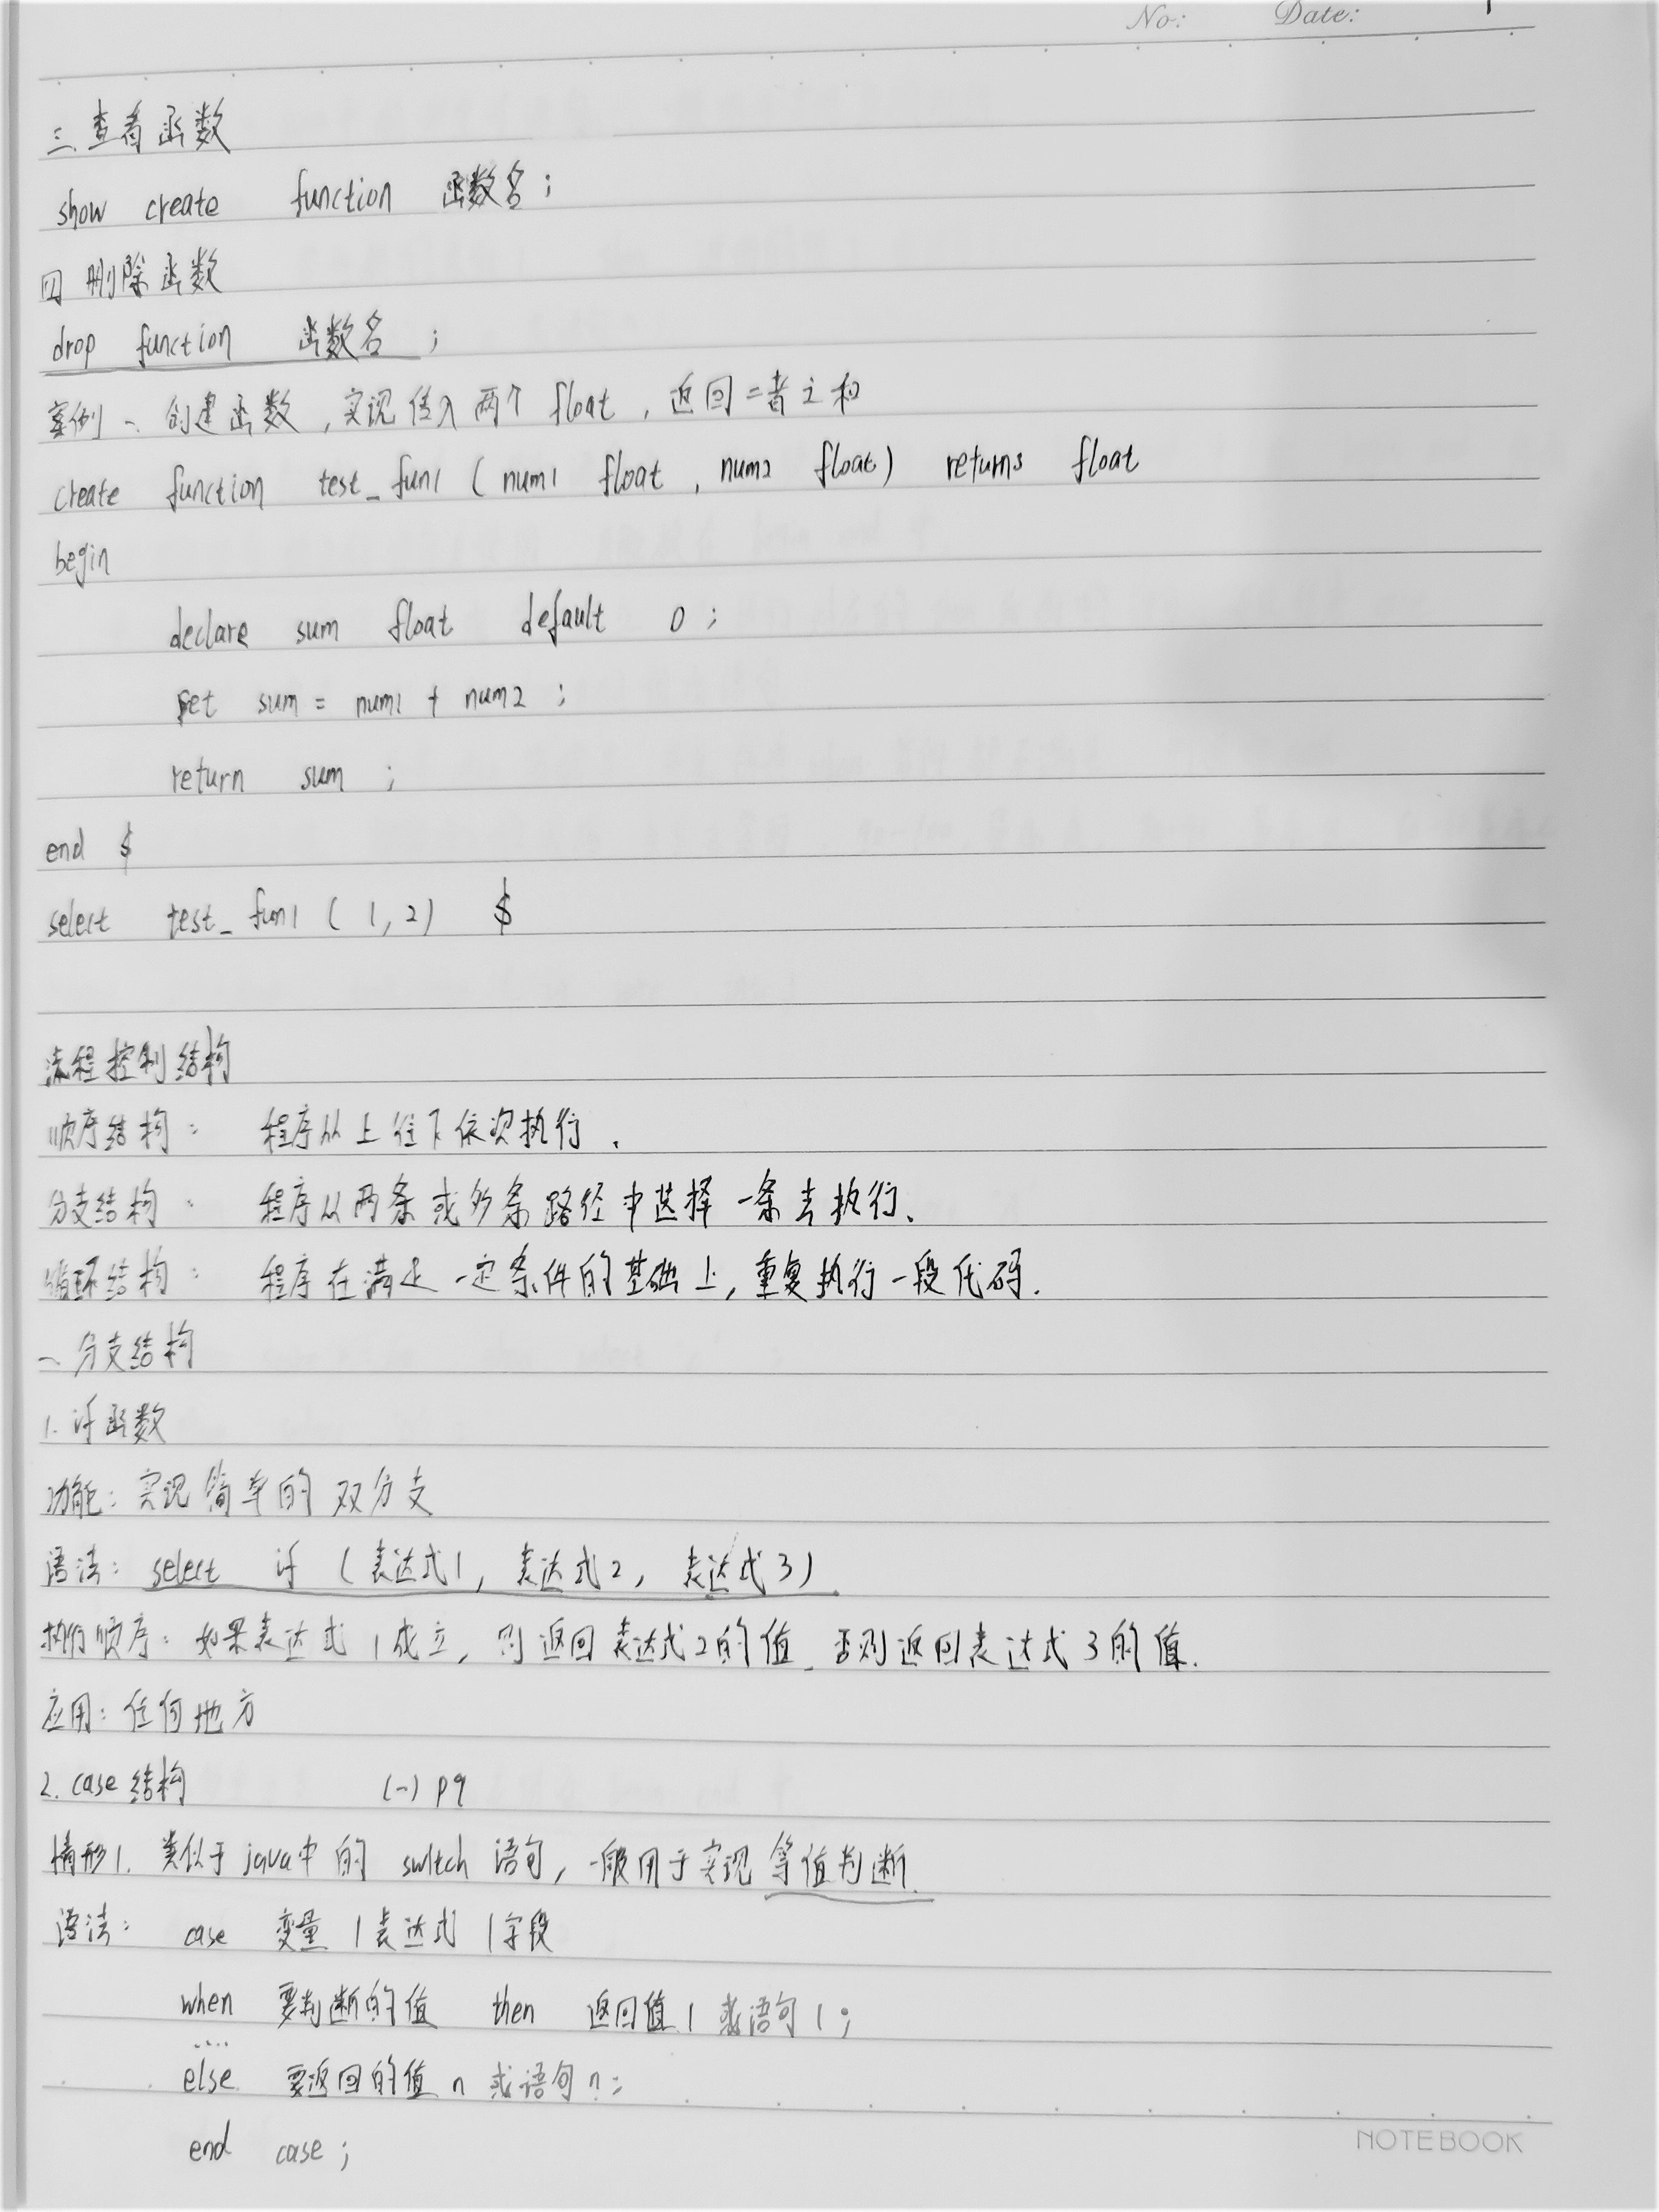 No: Date:
三、查看函数
show create function 函数名;
四 删除函数
drop function 函数名;
案例一、创建函数,实现传入两个float,返回二者之和
create function test_fun1 (num1 float, num2 float) returns float
begin
declare sum float default 0;
set sum = num1 + num2;
return sum;
end $
select test_fun1 (1,2) $
流程控制结构
顺序结构: 程序从上往下依次执行、
分支结构: 程序从两条或多条路径中选择一条去执行、
循环结构: 程序在满足一定条件的基础上,重复执行一段代码.
一、分支结构
1. if函数
功能:实现简单的双分支
语法: select if (表达式1, 表达式2, 表达式3)
执行顺序: 如果表达式1成立,则返回表达式2的值、否则返回表达式3的值.
应用:任何地方
2. case结构 (一) P9
情形1. 类似于java中的 switch 语句,一般用于实现等值判断.
语法: case 变量|表达式|字段
when 要判断的值 then 返回值1 或语句1;
....
else 要返回的值n 或语句n;
end case;
NOTEBOOK